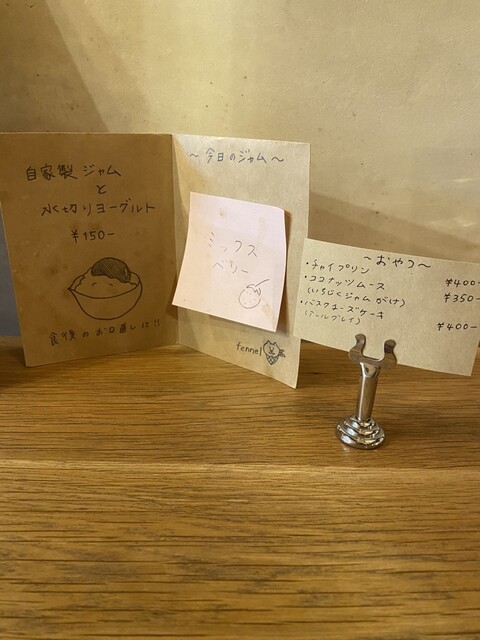 自家製ジャム
と
水切りヨーグルト
¥150-
食後のお口直しに!!
～今日のジャム～
ミックス
ベリー
fennel
～おやつ～
・チャイプリン ¥400-
・ココナッツムース ¥350-
(いちじくジャムがけ)
・バスクチーズケーキ ¥400-
(アールグレイ)